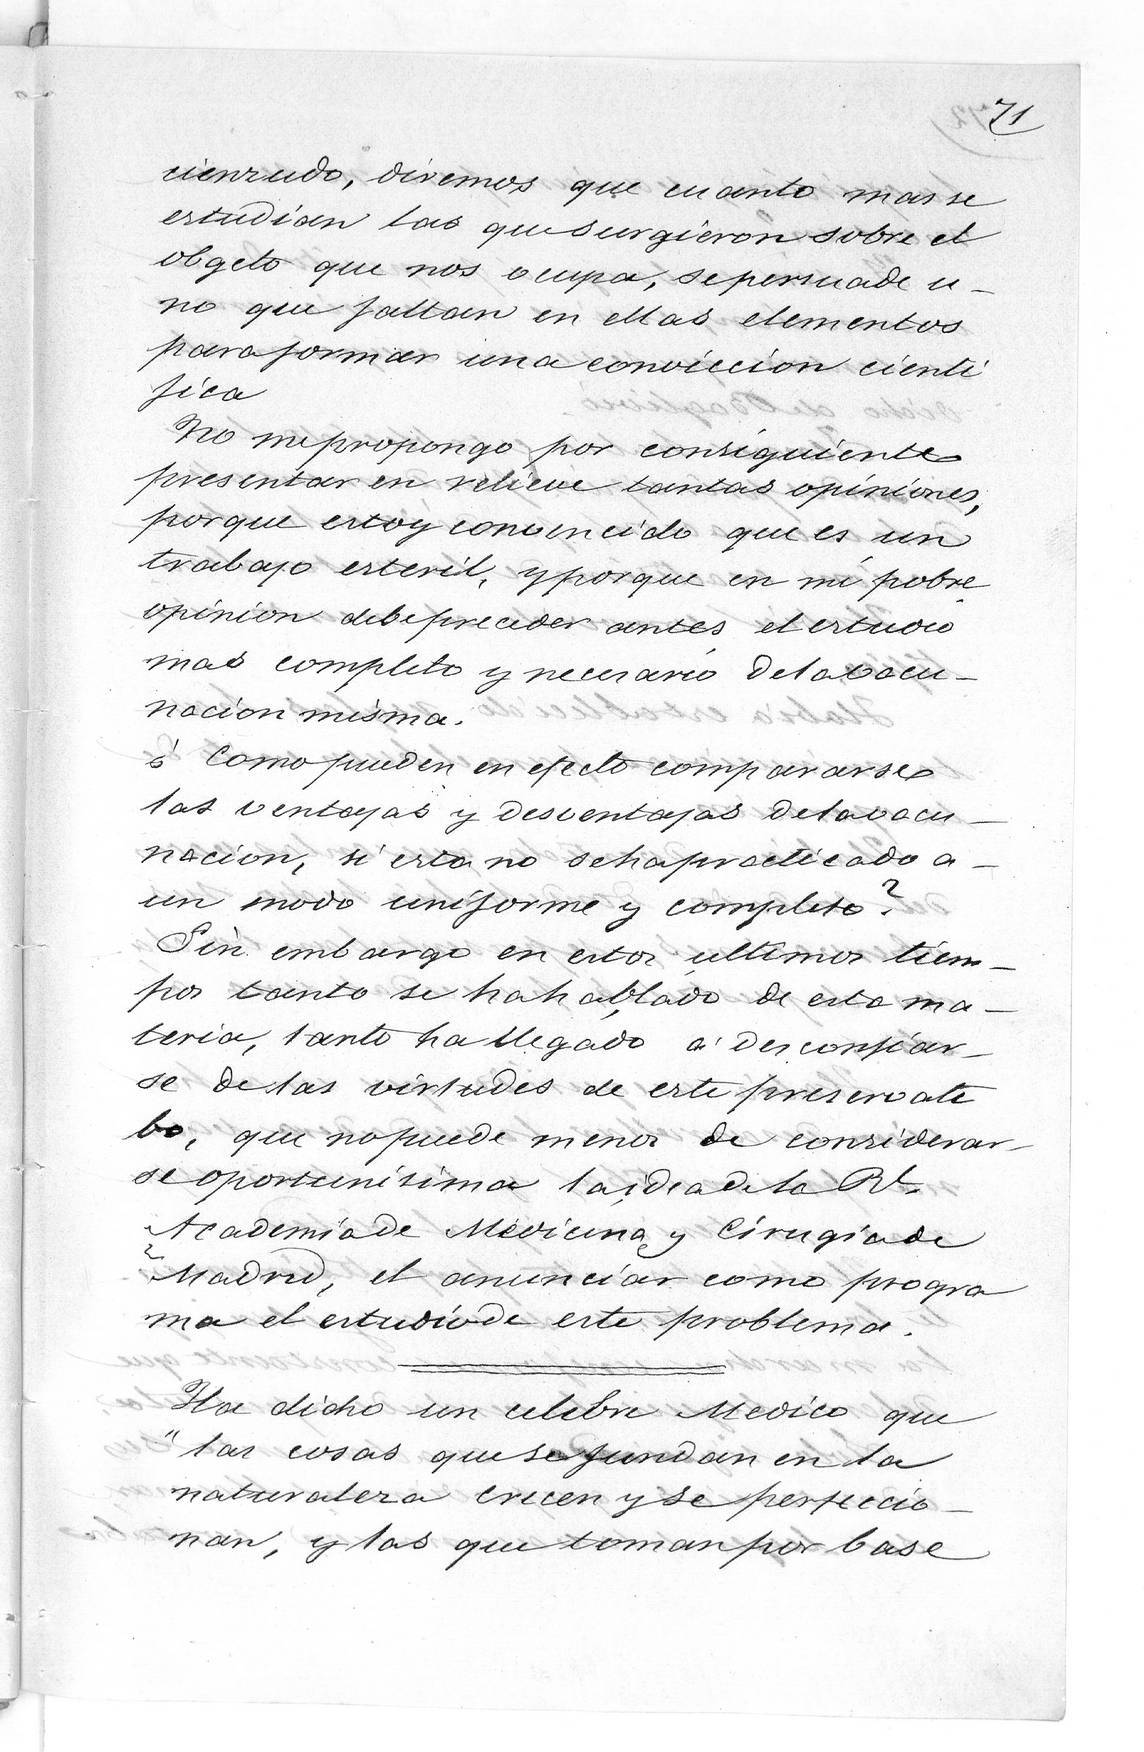 71
cienzudo, diremos que cuanto mas se
estudian las que surgieron sobre el
obgeto que nos ocupa, se persuade u-
no que faltan en ellas elementos
para formar una conviccion cienti
fica
No me propongo por consiguiente
presentar en relieve tantas opiniones,
porque estoy convencido que es un
trabajo esteril, y porque en mi pobre
opinion debe preceder antes el estudio
mas completo y necesario de la vacu-
nacion misma.
¿ Como pueden en efecto compararse
las ventajas y desventajas de la vacu-
nacion, si esta no se ha practicado a-
un modo uniforme y completo?
Sin embargo en estos ultimos tiem-
pos tanto se ha hablado de esta ma-
teria, tanto ha llegado á desconfiar-
se de las virtudes de este preservati
bo, que no puede menos de considerar-
se oportunisima la idea de la Rl.
Academia de Medicina y Cirugia de
Madrid, el anunciar como progra
ma el estudio de este problema.
Ha dicho un celebre Medico que
"las cosas que se fundan en la
naturaleza crecen y se perfeccio-
nan, y las que toman por base